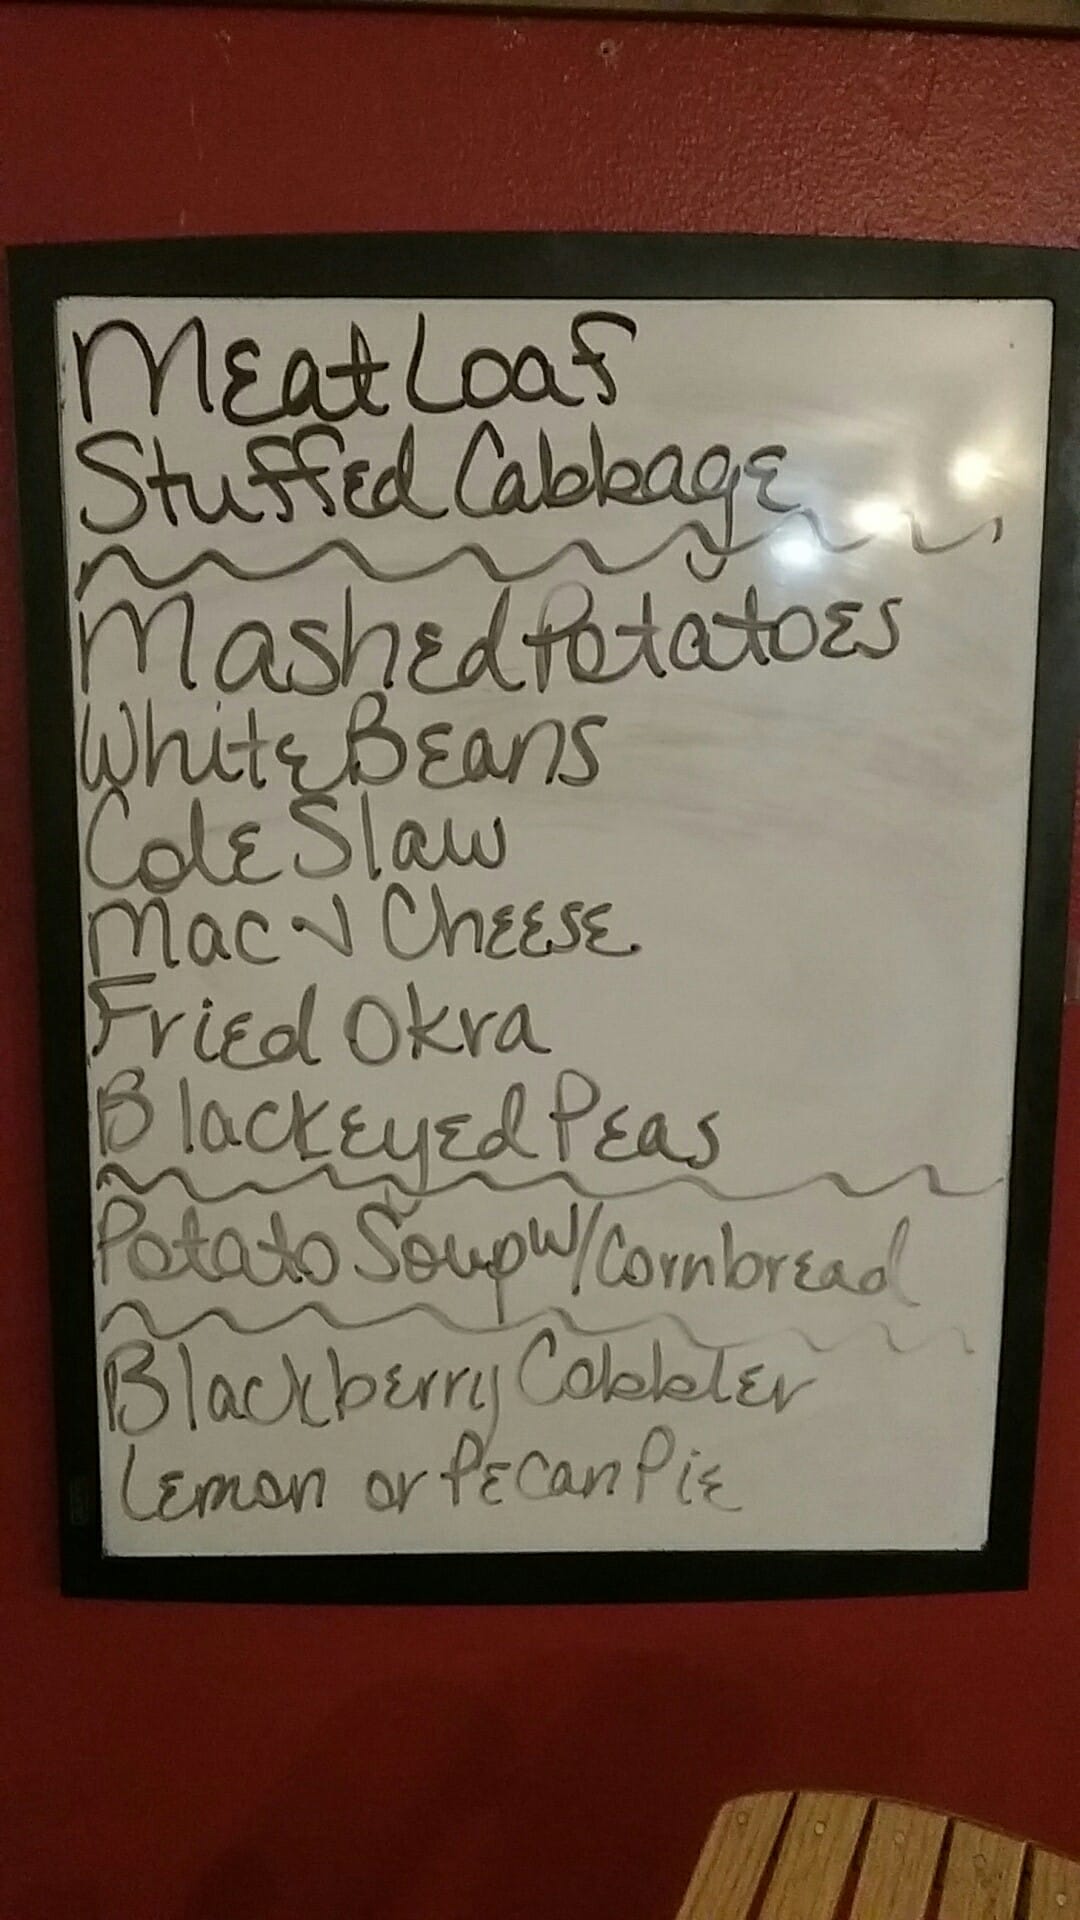 Meat Loaf
Stuffed Cabbage
Mashed Potatoes
White Beans
Cole Slaw
Mac N Cheese
Fried Okra
Blackeyed Peas
Potato Soup W/Cornbread
Blackberry Cobbler
Lemon or Pecan Pie